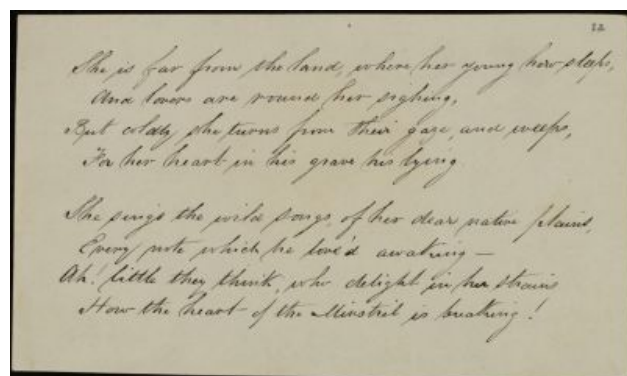 22
She is far from the land, where her young hero sleeps,
And lovers are round her sighing,
But coldly she turns from their gaze, and weeps,
For her heart in his grave his lying.
She sings the wild songs of her dear native plains,
Every note which he love'd awaking —
Ah! little they think, who delight in her strains
How the heart of the Minstril is breaking!